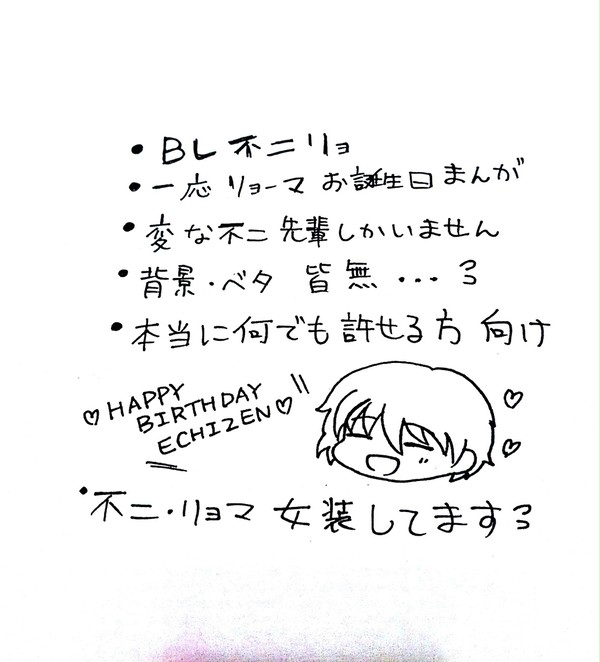 • BL 不二リョ
• 一応 リョーマ お誕生日 まんが
• 変な不二先輩しかいません
• 背景・ベタ 皆無・・・ろ
• 本当に何でも許せる方 向け
♡HAPPY
BIRTHDAY♡
ECHIZEN
• 不二・リョマ 女装してますろ